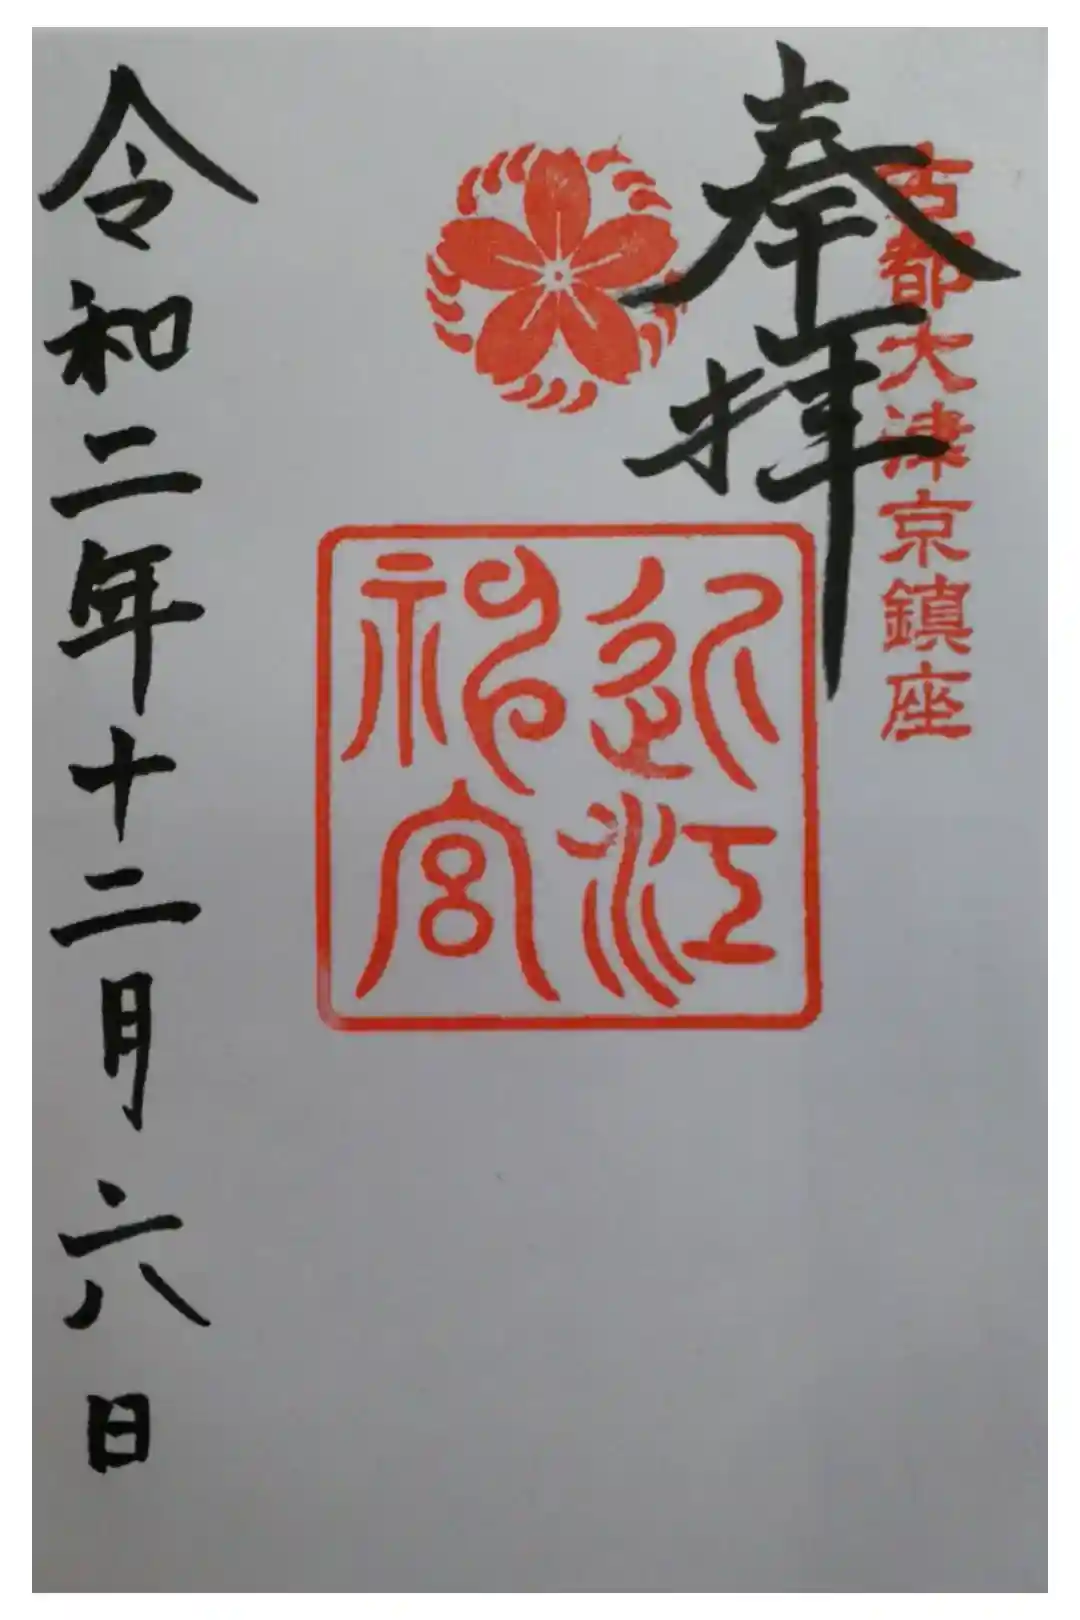 古都大津京鎮座
奉拝
近江
神宮
令和二年十二月六日